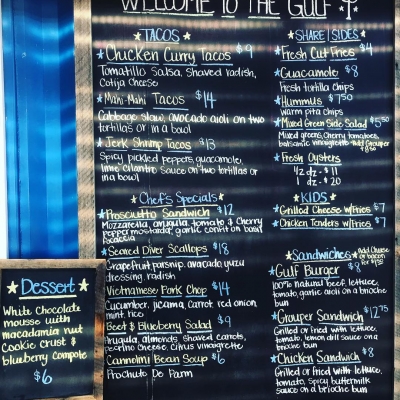 WELCOME TO THE GULF
TACOS
Chicken Curry Tacos $9
Tomatillo Salsa, Shaved radish,
Cotija cheese
Mahi-Mahi Tacos $14
Cabbage slaw, avocado aioli on two
tortillas or in a bowl
Jerk Shrimp Tacos $13
Spicy pickled peppers, guacamole,
lime cilantro sauce on two tortillas or
in a bowl
Chef's Specials
Prosciutto Sandwich $12
Mozzarella, arugula, tomato & Cherry
pepper mostarda, garlic confit on basil
focaccia
Seared Diver Scallops $18
Grapefruit, parsnip, avocado, yuzu
dressing, radish
Vietnamese Pork Chop $14
Cucumber, jicama, carrot, red onion,
mint, rice
Beet & Blueberry Salad $9
Arugula, almonds, shaved carrots,
pecorino cheese, citrus vinaigrette
Cannolini Bean Soup $6
Prochuto De Parm
SHARE | SIDES
Fresh Cut Fries $4
Guacamole $8
Fresh tortilla chips
Hummus $7.50
Warm pita chips
Mixed Green Side Salad $5.50
Mixed greens, Cherry tomatoes,
balsamic vinaigrette Add Grouper
+8.50
Fresh Oysters
1/2 dz - $11
1 dz - $20
KIDS
Grilled Cheese w/Fries $7
Chicken Tenders w/Fries $7
Sandwiches Add Cheese
or bacon
for $1.50
Gulf Burger $8
100% natural beef, lettuce,
tomato, garlic aioli on a brioche
bun
Grouper Sandwich $12.75
Grilled or fried with lettuce,
tomato, lemon dill sauce on a
brioche bun
Chicken Sandwich $8
Grilled or fried with lettuce,
tomato, spicy buttermilk
sauce on a brioche bun
Dessert
White Chocolate
mousse with
macadamia nut
cookie crust &
blueberry compote
$6